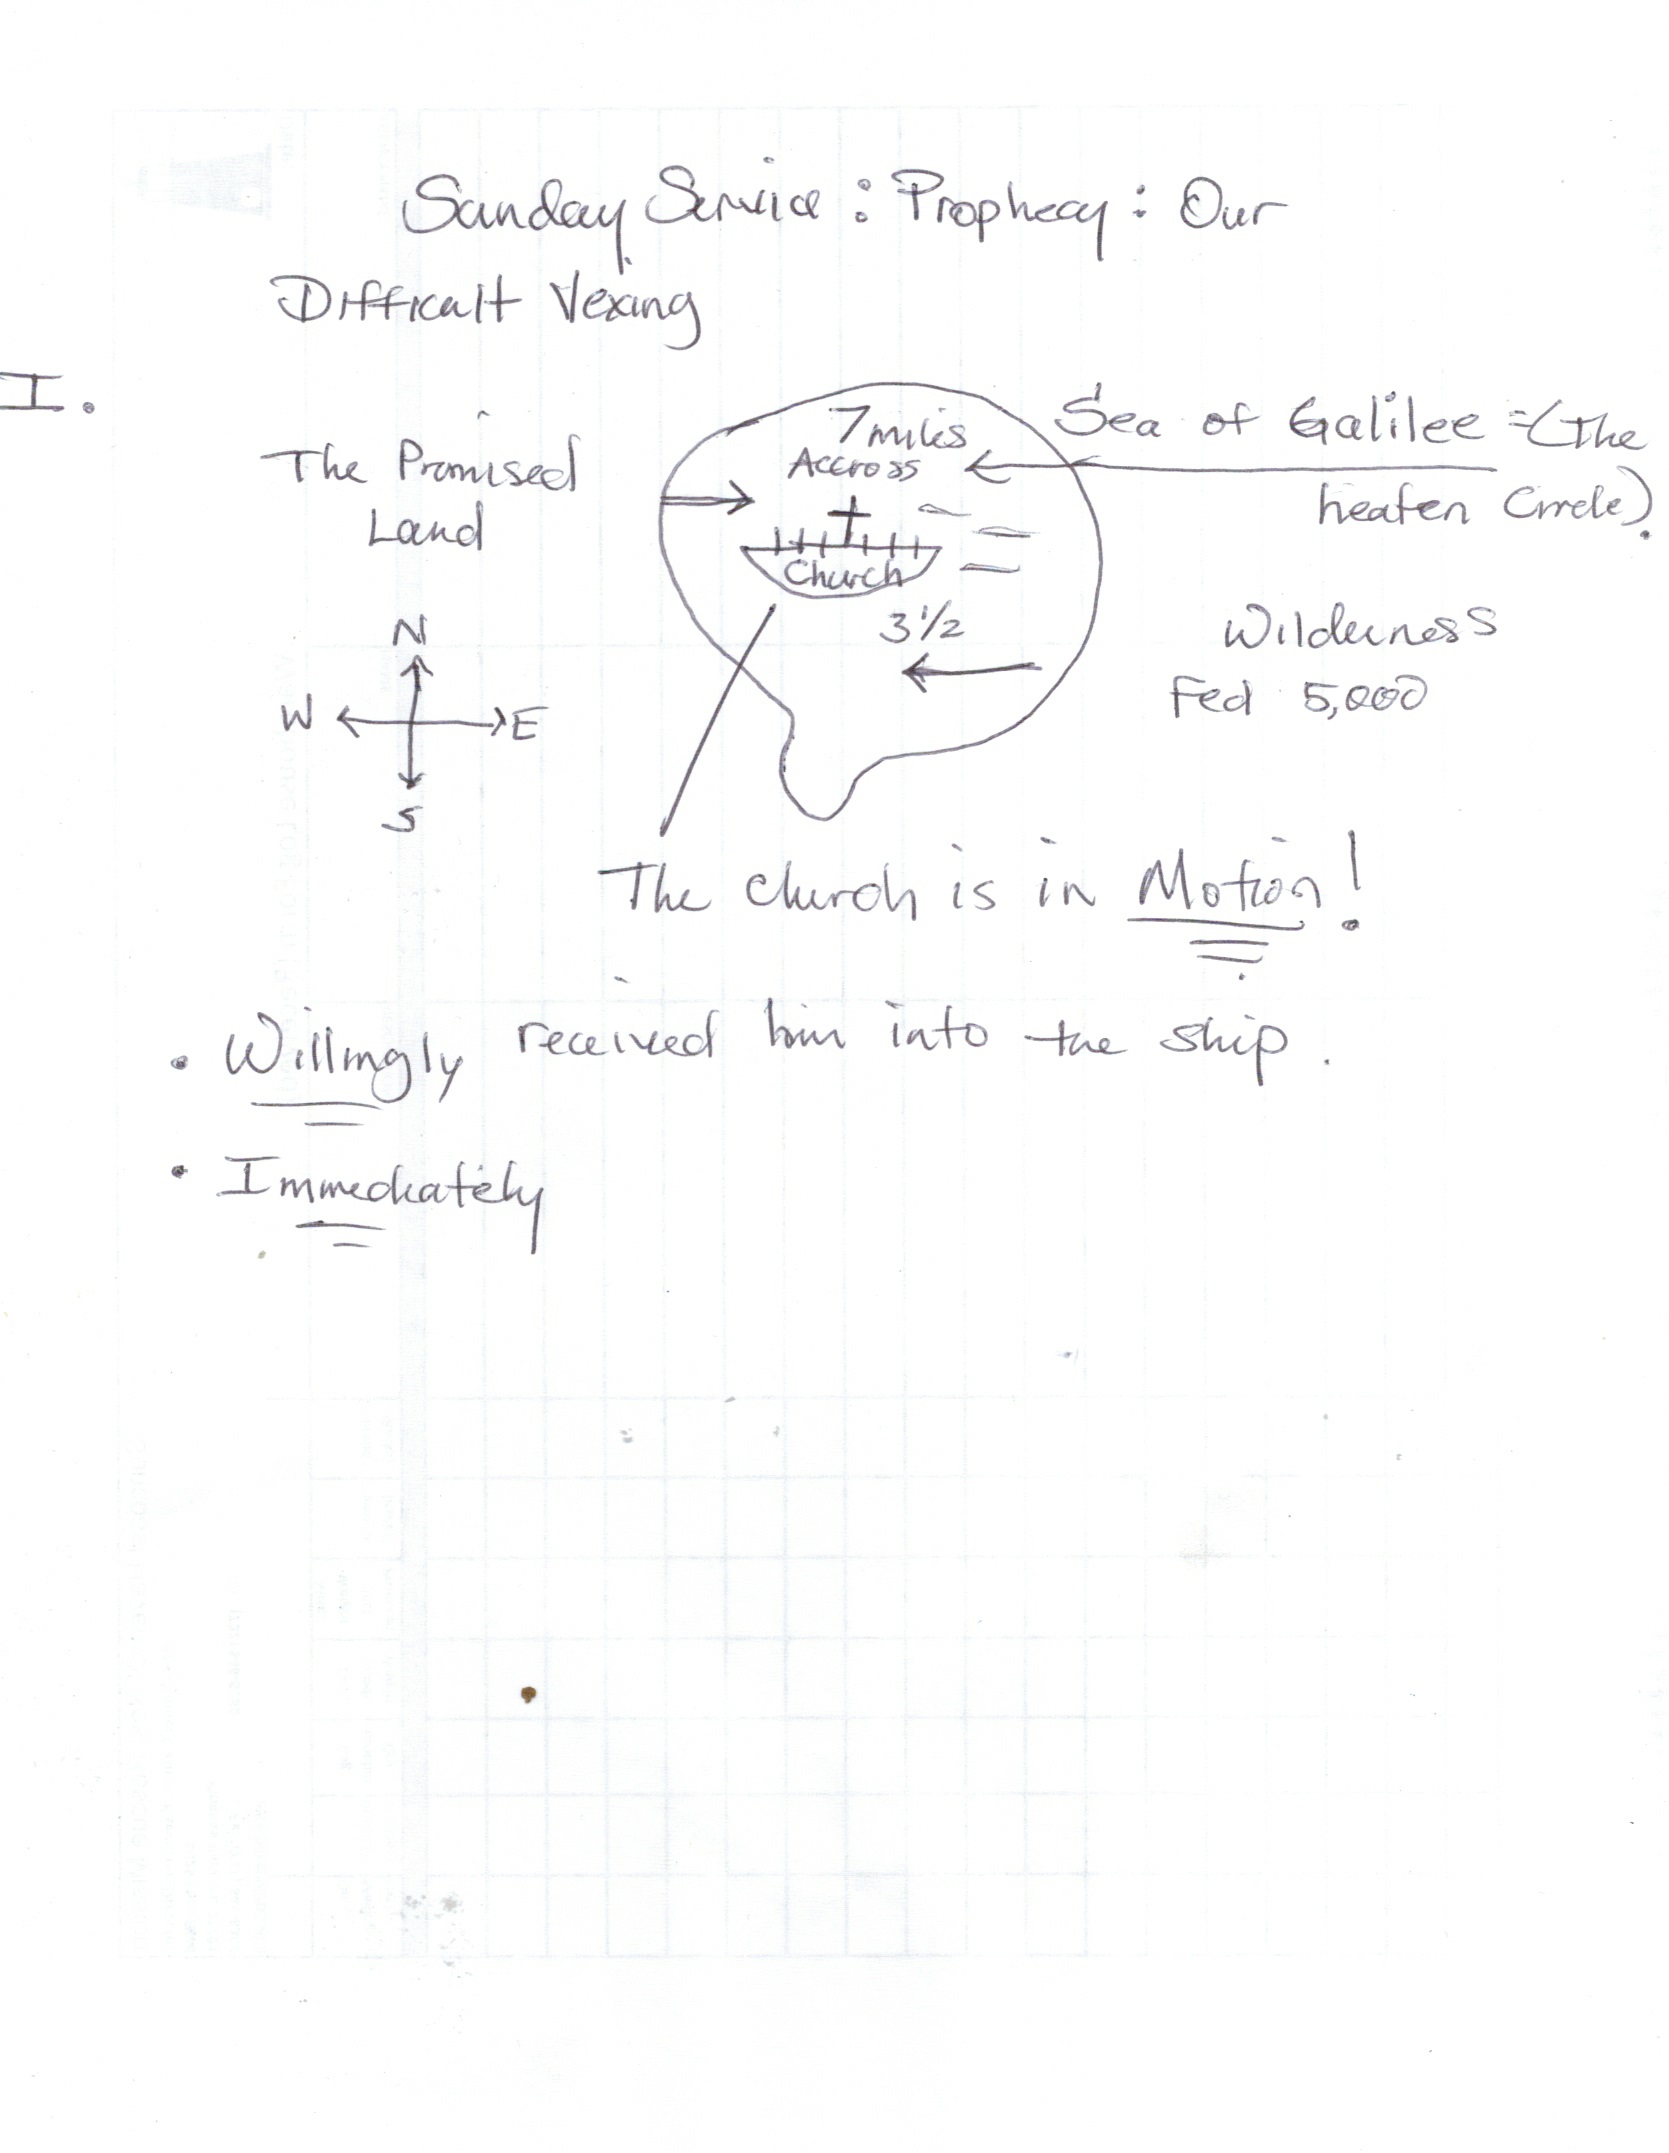 Sunday Service : Prophecy : Our
Difficult Vexing
I.
The Promised
Land
7 miles
Accross
Church
3 1/2
Sea of Galilee = (The
heaten Circle).
Wilderness
Fed 5,000
N
W E
S
The Church is in Motion!
• Willingly received him into the ship.
• Immediately